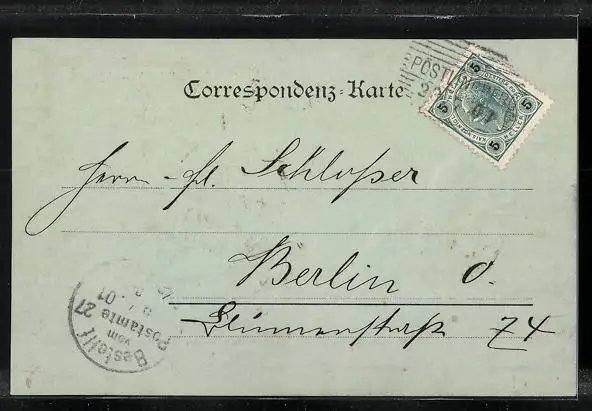 Correspondenz-Karte
5 5
HELLER
5 5
Herrn Schloßer
Berlin O.
Blumenstraße 74
Bestellt
vom
Postamte 27